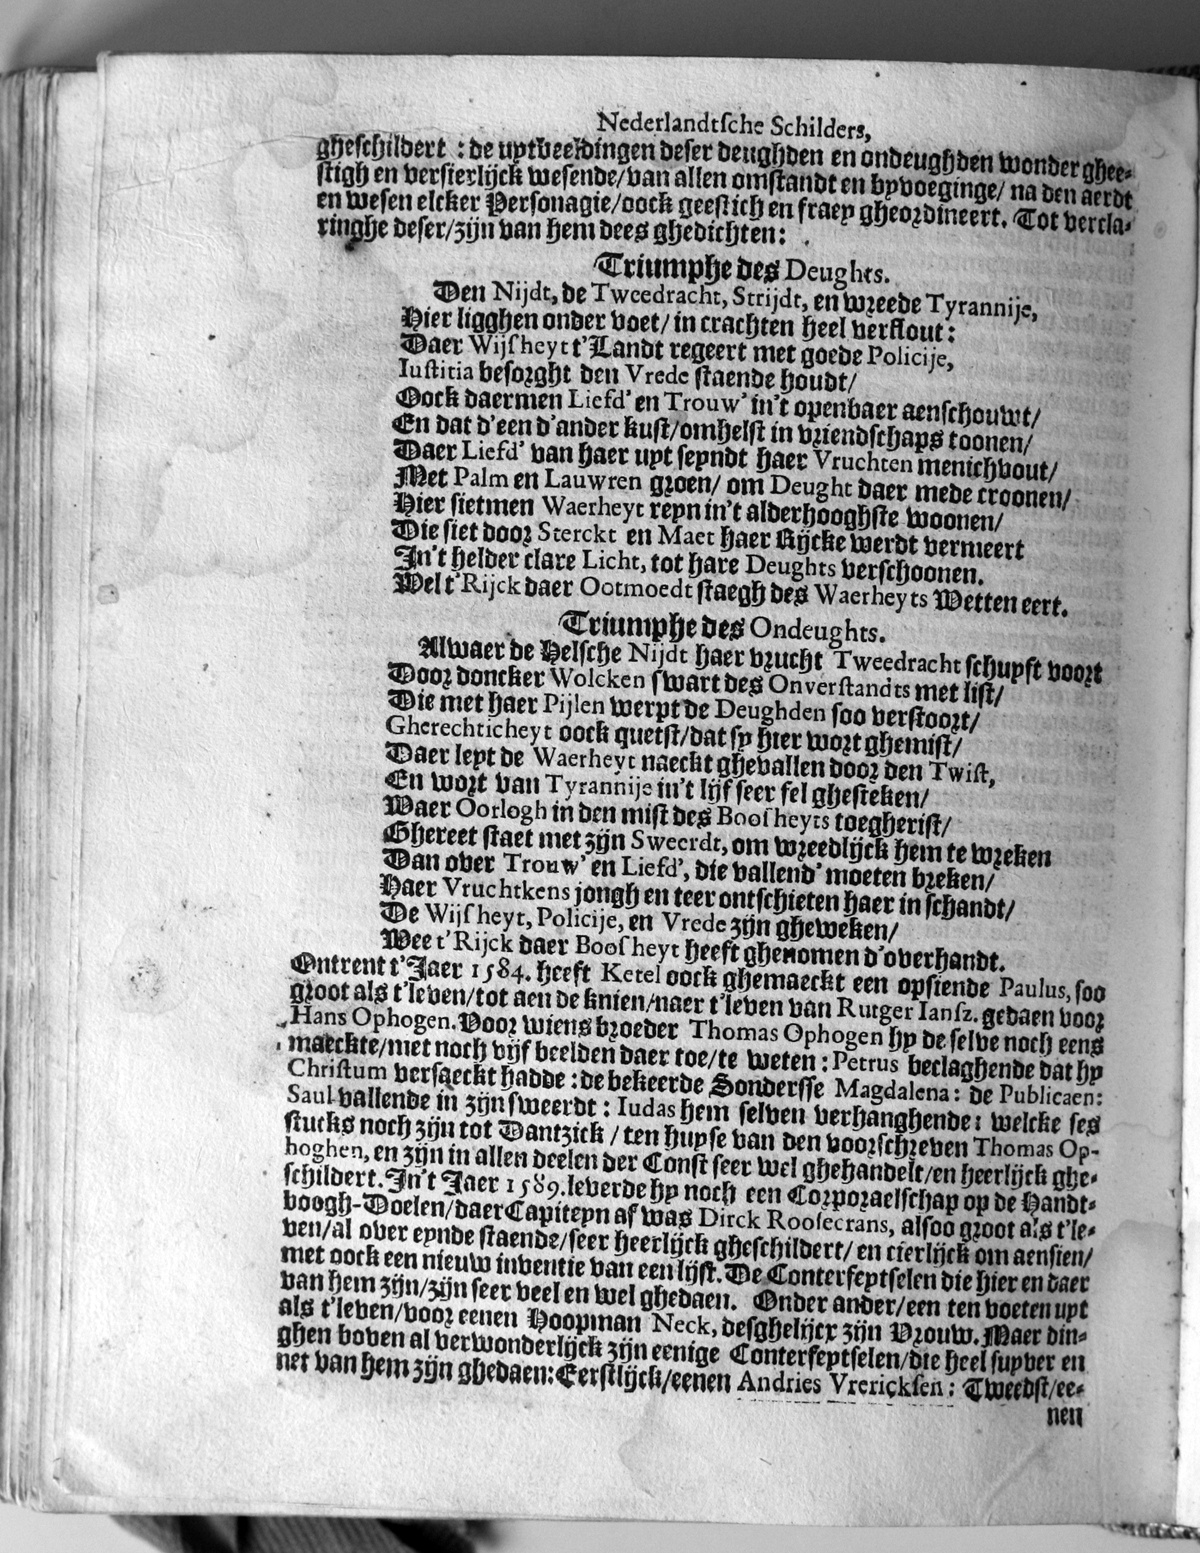 Nederlandtsche Schilders,
gheschildert : de uytbeeldingen deser deughden en ondeughden wonder ghee-
stigh en versierlijck wesende/van allen omstandt en byvoeginge/ na den aerdt
en wesen elcker Personagie/oock geestich en fraey gheordineert. Tot vercla-
ringhe deser/zijn van hem dees ghedichten:
Triumphe des Deughts.
Den Nijdt, de Tweedracht, Strijdt, en wreede Tyrannije,
Hier ligghen onder voet/ in crachten heel verflout:
Daer Wijsheyt t'Landt regeert met goede Policije,
Iustitia besorght den Vrede staende houdt/
Oock daermen Liefd' en Trouw' in't openbaer aenschouwt/
En dat d'een d'ander kust/omhelst in vriendschaps toonen/
Daer Liefd' van haer uyt seyndt haer Vruchten menichvout/
Met Palm en Lauwren groen/ om Deught daer mede croonen/
Hier sietmen Waerheyt reyn in't alderhooghste woonen/
Die siet door Sterckt en Maet haer Rijcke werdt vermeert
In't helder clare Licht, tot hare Deughts verschoonen.
Wel t'Rijck daer Ootmoedt staegh des Waerheyts Wetten eert.
Triumphe des Ondeughts.
Alwaer de Helsche Nijdt haer vrucht Tweedracht schuyft voort
Door doncker Wolcken swart des Onverstandts met list/
Die met haer Pijlen werpt de Deughden soo verstoort/
Gherechticheyt oock quetst/dat sy hier wort ghemist/
Daer leyt de Waerheyt naeckt ghevallen door den Twist,
En wort van Tyrannije in't lijf seer fel ghesteken/
Waer Oorlogh in den mist des Boosheyts toegherist/
Ghereet staet met zijn Sweerdt, om wreedlijck hem te wreken
Dan over Trouw' en Liefd', die vallend' moeten breken/
Haer Vruchtkens jongh en teer ontschieten haer in schandt/
De Wijsheyt, Policije, en Vrede zijn gheweken/
Wee t'Rijck daer Boosheyt heeft ghenomen d'overhandt.
Ontrent t'Jaer 1584. heeft Ketel oock ghemaeckt een opsiende Paulus, soo
groot als t'leven/tot aen de knien/naer t'leven van Rutger Iansz. gedaen voor
Hans Ophogen. Voor wiens broeder Thomas Ophogen hy de selve noch eens
maeckte/met noch vijf beelden daer toe/te weten : Petrus beclaghende dat hy
Christum versaeckt hadde : de bekeerde Sondersse Magdalena : de Publicaen:
Saul vallende in zijn sweerdt : Iudas hem selven verhanghende : welcke ses
stucks noch zijn tot Dantzick / ten huyse van den voorschreven Thomas Op-
hoghen, en zijn in allen deelen der Const seer wel ghehandelt/en heerlijck ghe-
schildert. In't Jaer 1589. leverde hy noch een Corporaelschap op de Handt-
boogh-Doelen/daer Capiteyn af was Dirck Roosecrans, alsoo groot als t'le-
ven/al over eynde staende/seer heerlijck gheschildert/ en cierlijck om aensien/
met oock een nieuw inventie van een lijst. De Conterfeytselen die hier en daer
van hem zijn/zijn seer veel en wel ghedaen. Onder ander/een ten voeten uyt
als t'leven/voor eenen Hoopman Neck, desghelijcx zijn Vrouw. Maer din-
ghen boven al verwonderlijck zijn eenige Conterfeytselen/die heel suyver en
net van hem zijn ghedaen: Eerstlijck/eenen Andries Vrericksen : Tweedst/ee-
nen